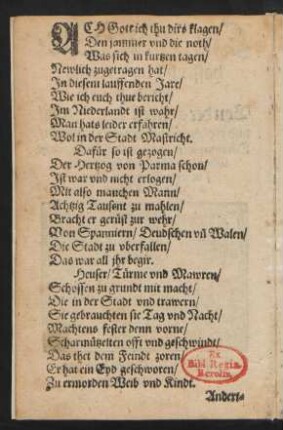 ACH Gott ich thu dirs klagen/
Den jammer vnd die noth/
Was sich in kurtzen tagen/
Newlich zugetragen hat/
In diesem lauffenden Jare/
Wie ich euch thue bericht/
Im Niederlandt ist wahr/
Man hats leider erfahren/
Wol in der Stadt Mastricht.
Dafür so ist gezogen/
Der Hertzog von Parma schon/
Ist war vnd nicht erlogen/
Mit also manchen Mann/
Achtzig Tausont zu mahlen/
Bracht er gerüst zur wehr/
Von Spanniern/ Deudschen vñ Walen/
Die Stadt zu vberfallen/
Das war all jhr begir.
Heuser/ Türme vnd Mawren/
Schossen zu grundt mit macht/
Die in der Stadt vnd trawern/
Sie gebrauchten sie Tag vnd Nacht/
Machtens fester denn vorne/
Scharmützelten offt vnd geschwindt/
Das thet dem Feindt zoren/
Er hat ein Eyd geschworen/
Zu ermorden Weib vnd Kindt.
Andert-
Ex
Bibl. Regia
Berolin.